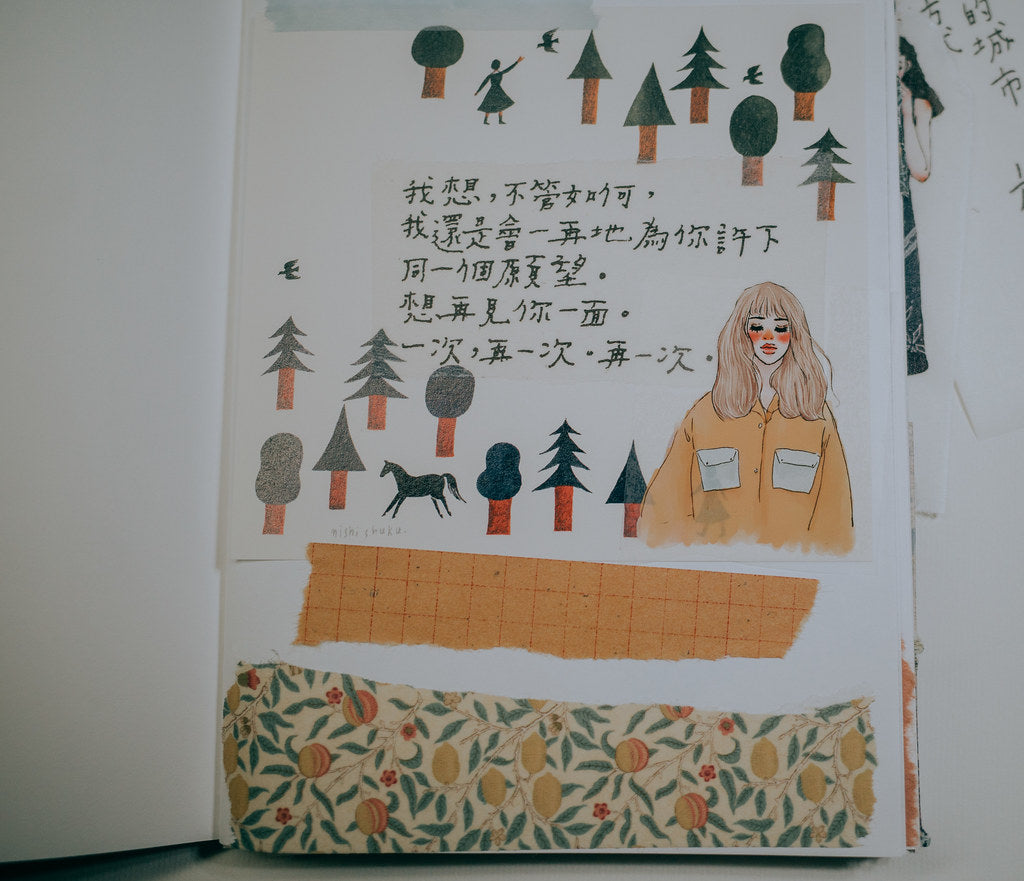 我想，不管如何，
我還是會一再地為你許下
同一個願望。
想再見你一面。
一次，再一次。再一次。
nishi shuku.
的城市